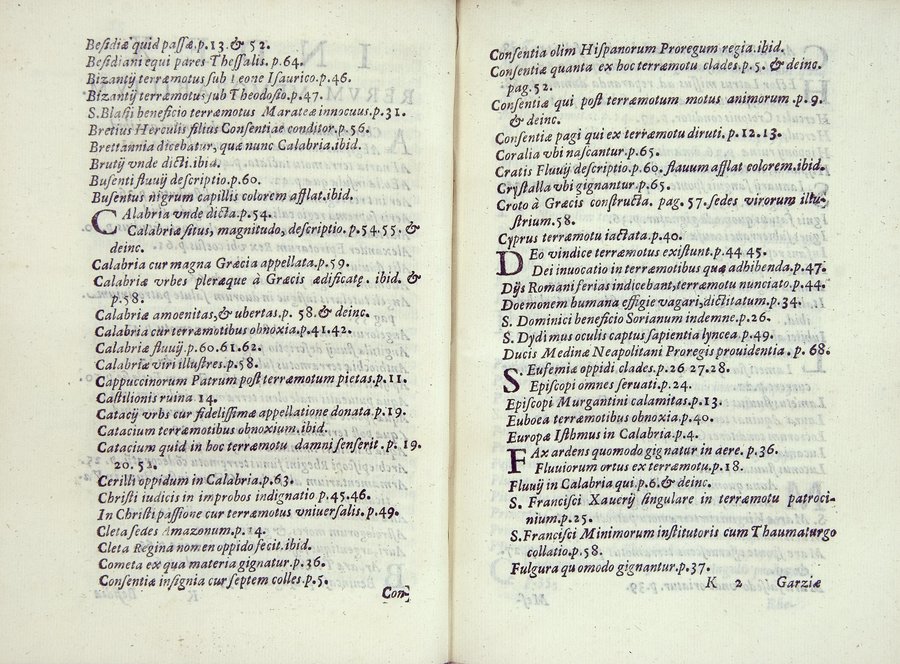 Besidiæ quid passæ.p.13.& 52.
Besidiani equi pares Thessalis.p.64.
Bizantij terræmotus sub Leone Isaurico.p.46.
Bizantij terræmotus sub Theodosio.p.47.
S.Blasij beneficio terræmotus Marateæ innocuus.p.31.
Bretius Herculis filius Consentiae conditor.p.56.
Brettannia dicebatur, quæ nunc Calabria.ibid.
Brutij vnde dicti.ibid.
Busenti fluuij descriptio.p.60.
Busentus nigrum capillis colorem afflat.ibid.
CAlabria vnde dicta.p.54.
Calabriæ situs, magnitudo, descriptio.p.54.55. &
deinc.
Calabria cur magna Græcia appellata.p.59.
Calabriæ vrbes pleræque à Græcis ædificatę. ibid. &
p.58.
Calabriæ amoenitas,& ubertas.p. 58.& deinc.
Calabria cur terræmotibus obnoxia.p.41.42.
Calabriæ fluuij.p.60.61.62.
Calabriæ viri illustres.p.58.
Cappuccinorum Patrum post terræmotum pietas.p.11.
Castilionis ruina 14.
Catacij vrbs cur fidelissimæ appellatione donata.p.19.
Catacium terræmotibus obnoxium.ibid.
Catacium quid in hoc terræmotu damni senserit.p.19.
20.52.
Cerilli oppidum in Calabria.p.63.
Christi iudicis in improbos indignatio p.45.46.
In Christi passione cur terræmotus vniuersalis.p.49.
Cleta sedes Amazonum.p.24.
Cleta Regina nomen oppido fecit.ibid.
Cometa ex qua materia gignatur.p.36.
Consentiæ insignia cur septem colles.p.5.
Con-
Consentia olim Hispanorum Proregum regia.ibid.
Consentiæ quanta ex hoc terræmotu clades.p.5. & deinc.
pag.52.
Consentiæ qui post terræmotum motus animorum.p.9.
& deinc.
Consentiæ pagi qui ex terræmotu diruti.p.12.13.
Coralia vbi nascantur.p.65.
Cratis Fluuij descriptio.p.60. flauum afflat colorem.ibid.
Crystalla vbi gignantur.p.65.
Croto à Græcis constructa. pag.57.sedes virorum illu-
strium.58.
Cyprus terræmotu iactata.p.40.
DEo vindice terræmotus existunt.p.44 45.
Dei inuocatio in terræmotibus quæ adhibenda.p.47.
Dijs Romani ferias indicebant,terræmotu nunciato.p.44.
Doemonem humana effigie vagari,dictitatum.p.34.
S. Dominici beneficio Sorianum indemne.p.26.
S. Dydimus oculis captus sapientia lyncea.p.49.
Ducis Medinæ Neapolitani Proregis prouidentia.p.68.
S. Eufemiæ oppidi clades.p.26 27.28.
Episcopi omnes seruati.p.24.
Episcopi Murgantini calamitas.p.13.
Euboea terræmotibus obnoxia.p.40.
Europæ Isthmus in Calabria.p.4.
FAx ardens quomodo gignatur in aere.p.36.
Fluuiorum ortus ex terræmotu.p.18.
Fluuij in Calabria qui.p.6.& deinc.
S. Francisci Xauerij singulare in terræmotu patroci-
nium.p.25.
S.Francisci Minimorum institutoris cum Thaumaturgo
collatio.p.58.
Fulgura quomodo gignantur.p.37.
K 2 Garziæ